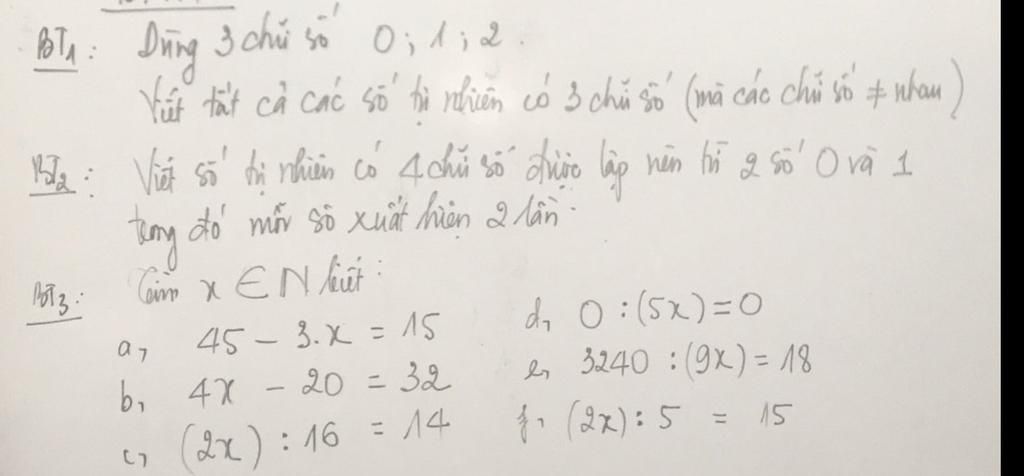 BT1: Dùng 3 chữ số 0; 1; 2.
Viết tất cả các số tự nhiên có 3 chữ số (mà các chữ số ≠ nhau)
BT2: Viết số tự nhiên có 4 chữ số được lập nên từ 2 số 0 và 1
trong đó mỗi số xuất hiện 2 lần.
BT3: Tìm x ∈ N biết:
a, 45 - 3.x = 15
b, 4x - 20 = 32
c, (2x) : 16 = 14
d, 0 : (5x) = 0
e, 3240 : (9x) = 18
f, (2x) : 5 = 15